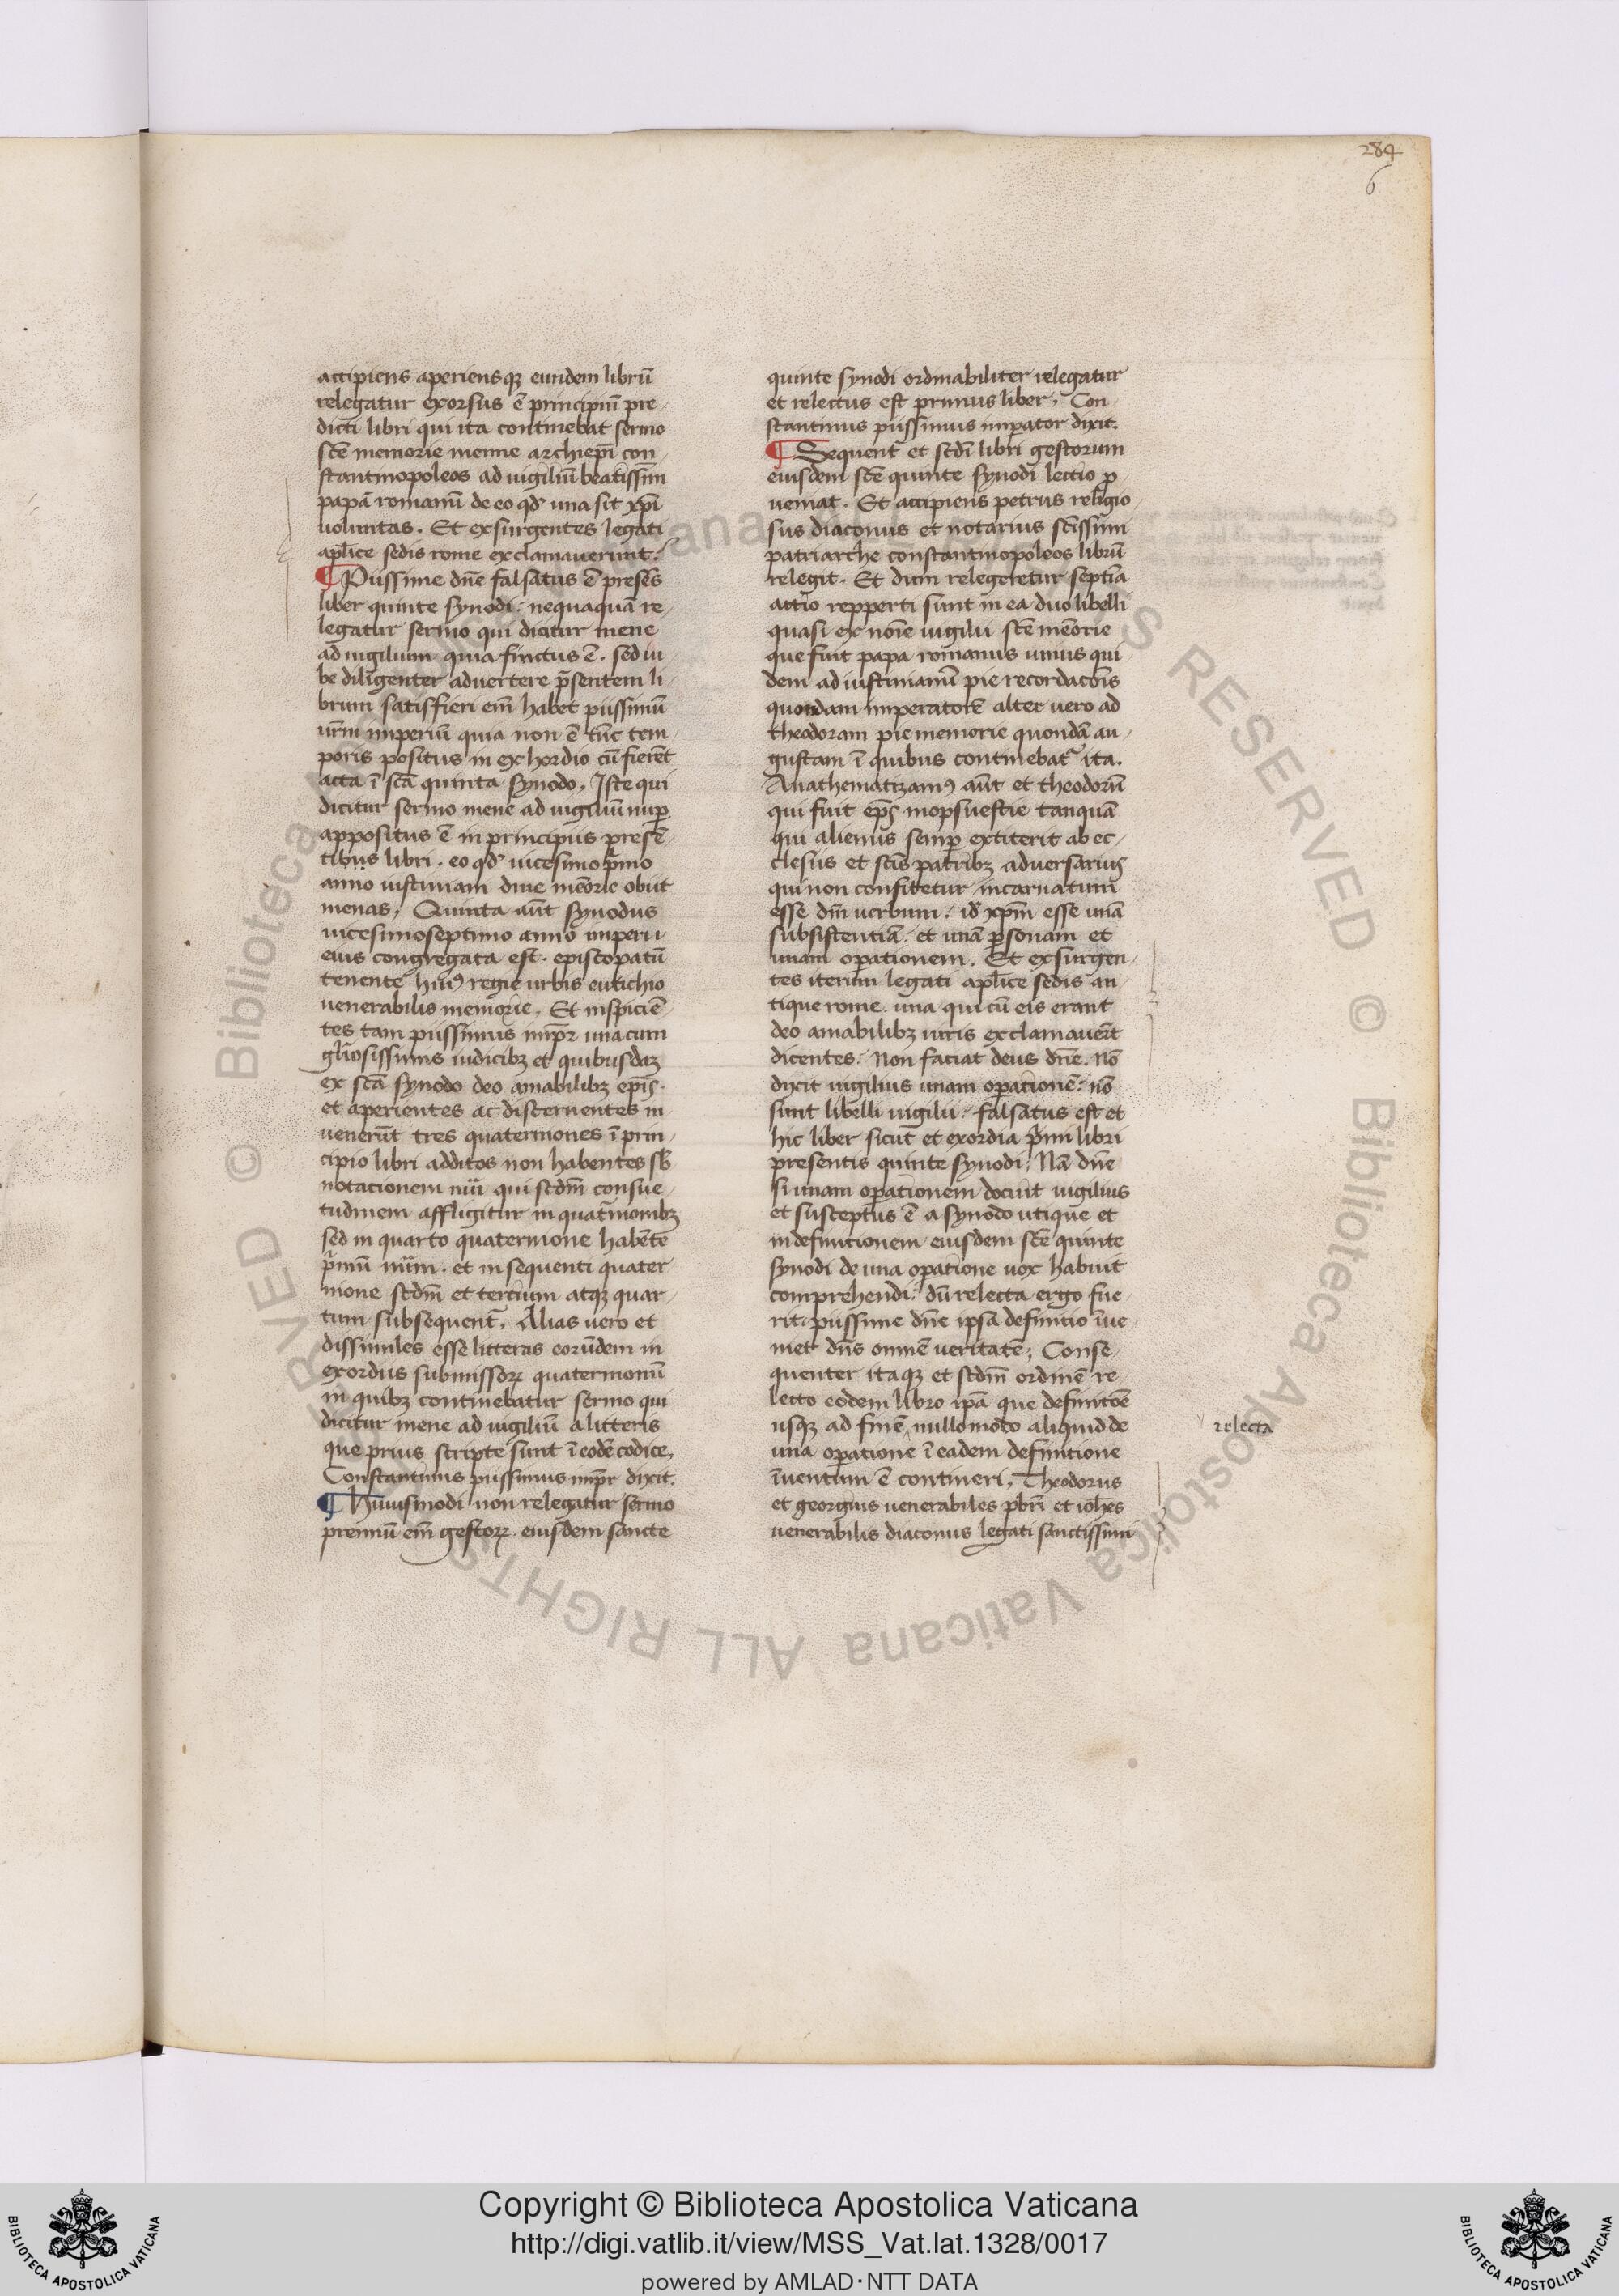 284
6
accipiens aperiensqꝫ eundem librū
relegatur exorsus ē principiū pre
dicti libri qui ita continebat sermo
scē memorie menne archiep̄i con
stantinopoleos ad uigiliū beatissim
papā romanū de eo qd̓ una sit xp̄i
uoluntas. Et exsurgentes legati
apl̄ice sedis rome exclamauerunt.
¶ Piissime dn̄e falsatus ē presēs
liber quinte synodi: nequaquā re
legatur sermo qui dicitur mene
ad uigilium quia finctus ē. sed iu
be diligenter advertere p̄sentem li
brum satisfieri em̄ habet piissimū
ur̄m imperiū quia non ē tūc tem
poris positus in exhordio cū fierēt
acta ī scā quinta synodo. Iste qui
dicitur sermo mene ad uigiliū nuꝑ
appositus ē in principiis presē
tibus libri. eo qd̓ uicesimo p̓mo
anno iustiniani diue meōrie obiit
menas. Quinta aūt synodus
uicesimoseptimo anno imperii
eius congregata est. episcopatū
tenente huiꝰ regie urbis eutichio
uenerabilis memorie. Et inspiciē
tes tam piissimus imp̄r una cum
gl̄iosissimis iudicibꝫ et quibusdaꝫ
ex scā synodo deo amabilibꝫ ep̄is.
et aperientes ac discernentes in
uenerūt tres quaterniones ī prin
cipio libri additos non habentes sb̄
notacionem nūi qui scdm̄ consue
tudinem affligitur in quat̄nionibꝫ
sed in quarto quaternione habēte
p̓mū nūm. et in sequenti quater
nione scdm̄ et tercium atqꝫ quar
tum subsequent̄. Alias uero et
dissimiles esse litteras eorūdem in
exordiis submissoꝝ quaternionū
in quibꝫ continebatur sermo qui
dicitur mene ad uigiliū a litteris
que prius scripte sunt ī eodē codice.
Constantinus piissimus imp̄r dixit.
¶ Huiusmodi non relegatur sermo
premiū em̄ gestoꝝ. eiusdem sancte
quinte synodi ordinabiliter relegatur
et relectus est primus liber. Con
stantinus piissimus imperator dixit.
¶ Sequent̄ et scdi libri gestorum
eiusdem scē quinte synodi lectio ꝓ
ueniat. Et accipiens petrus religio
sus diaconus et notarius sc̄issim
patriarche constantinopoleos librū
relegit. Et dum relegeretur septīa
actio repperti sunt in ea duo libelli
quasi ex noīe uigilii scē meōrie
que fuit papa romanus unius qui
dem ad iustinianū pie recordacōis
quondam imperatorē alter uero ad
theodoram pie memorie quondā au
gustam ī quibus continebat̄ ita.
Anathematizamꝰ aūt et theodorū
qui fuit ep̄s mopsuestie tanquā
qui alienus semꝑ extiterit ab ec
clesiis et scīs patribꝫ adversariꝰ
qui non confitetur incarnatum
esse dm̄ uerbum. id̄ xp̄m esse unā
subsistentiā. et unā ꝑsonam et
unam oꝑationem. Et exsurgen
tes iterum legati apl̄ice sedis an
tique rome. una qui cū eis erant
deo amabilibꝫ uiris exclamauēt
dicentes. Non faciat deus dn̄e. nō
dixit uigilius unam oꝑationē: nō
sunt libelli uigilii. falsatus est et
hic liber sicut et exordia p̓mi libri
presentis quinte synodi. Nā dn̄e
si unam oꝑationem docuit uigilius
et susceptus ē a synodo utique et
in definitionem eiusdem scē quinte
synodi de una oꝑatione uox habuit
comprehendi. dū relecta ergo fue
rit piissime dn̄e ipsa definitio īue
niet dn̄s omnē veritatē. Conse
quenter itaqꝫ et scdm̄ ordinē re
lecto eodem libro ip̄a que definitōe
usqꝫ ad finē nullomodo aliquid de
relecta
una oꝑatione ī eadem definitione
īuentum ē contineri. Theodorus
et georgius venerabiles pbr̄i et ioh̄es
uenerabilis diaconus legati sanctissimi
Copyright © Biblioteca Apostolica Vaticana
http://digi.vatlib.it/view/MSS_Vat.lat.1328/0017
powered by AMLAD·NTT DATA
BIBLIOTECA APOSTOLICA VATICANA
BIBLIOTECA APOSTOLICA VATICANA
© Biblioteca Apostolica Vaticana ALL RIGHTS RESERVED